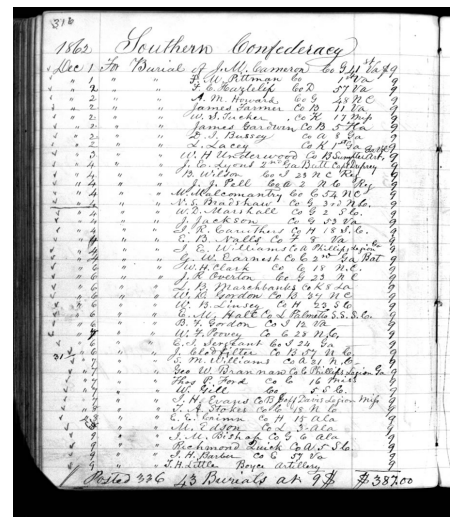 316
1862 Southern Confederacy
Dec 1 For Burial of J. M. Cameron Co G 41st Va $ 9
" 1 " " Pittman Co 1st Va 9
" 2 " " F. C. Hazlelip Co D 57 Va 9
" 2 " " A. M. Howard Co G 48 N C 9
" 2 " " James Farmer Co B 11 Va 9
" 2 " " W. S. Tucker Co K 17 Miss 9
" 2 " " James Co B 5 9
" 2 " " Bussey Co A 8 Ga 9
" 2 " " L. Lacey Co K 1st 9
" 3 " " W. H. Underwood Co B Sumpter Art, 9
" 4 " " J. C. Lyons 2nd Ga Batt Capt 9
" 4 " " B. Wilson Co I 23 N C Reg 9
" 4 " " J. J. Pell Co A 2 N C Reg 9
" 4 " " W. Co C 54 N C 9
" 4 " " N. S. Bradshaw Co G 3rd N. C. 9
" 4 " " W. D. Marshall Co G 2 S. C. 9
" 4 " " J. Jackson Co G 53 Va 9
" 4 " " S. R. Caruthers Co H 18 S. C. 9
" 4 " " C. B. Nalls Co F 8 Va 9
" 4 " " S. E. Williams Co A Phillips Legion Ga 9
" 4 " " G. W. Earnest Co C 2nd Ga Bat 9
" 6 " " W. H. Clark Co C 18 N. C. 9
" 6 " " J. R. Overton Co G 23 N C 9
" 6 " " L. B. Marchbanks Co K 8 La 9
" 6 " " W. D. Gordon Co B 27 N C 9
" 6 " " W. B. Linsey Co H 23 S C 9
" 6 " " E. M. Hall Co L Palmetto S. S. S. C. 9
" 6 " " B. F. Gordon Co I 12 Va 9
" 6 " " W. F. Povey Co C 28 N. C. 9
" 6 " " C. J. Sergeant Co I 24 Ga 9
31 " 6 " " J. Clodfelter Co B 57 N. C. 9
" 7 " " S. M. Williams Co A 21 N. C. 9
" 7 " " Geo W Brannan Co C Phillips Legion Ga 9
" 7 " " Thos P. Ford Co C 16 Miss 9
" 7 " " W. Gill Co 5 S. C. 9
" 7 " " J. H. Evans Co B Jeff Davis Legion Miss 9
" 7 " " T. A. Stokes Co C 18 N C 9
" 8 " " E. E. Co H 15 Ala 9
" 9 " " M. Edson Co L 3 Ala 9
" 9 " " J. M. Bishop Co G 6 Ala 9
" 9 " " Richmond Quick Co A 5 S. C. 9
" 9 " " J. H. Barber Co E 57 Va 9
" 9 " " T. H. Littler Boyce Artillery 9
Posted 336 43 Burials at 9$ $387.00